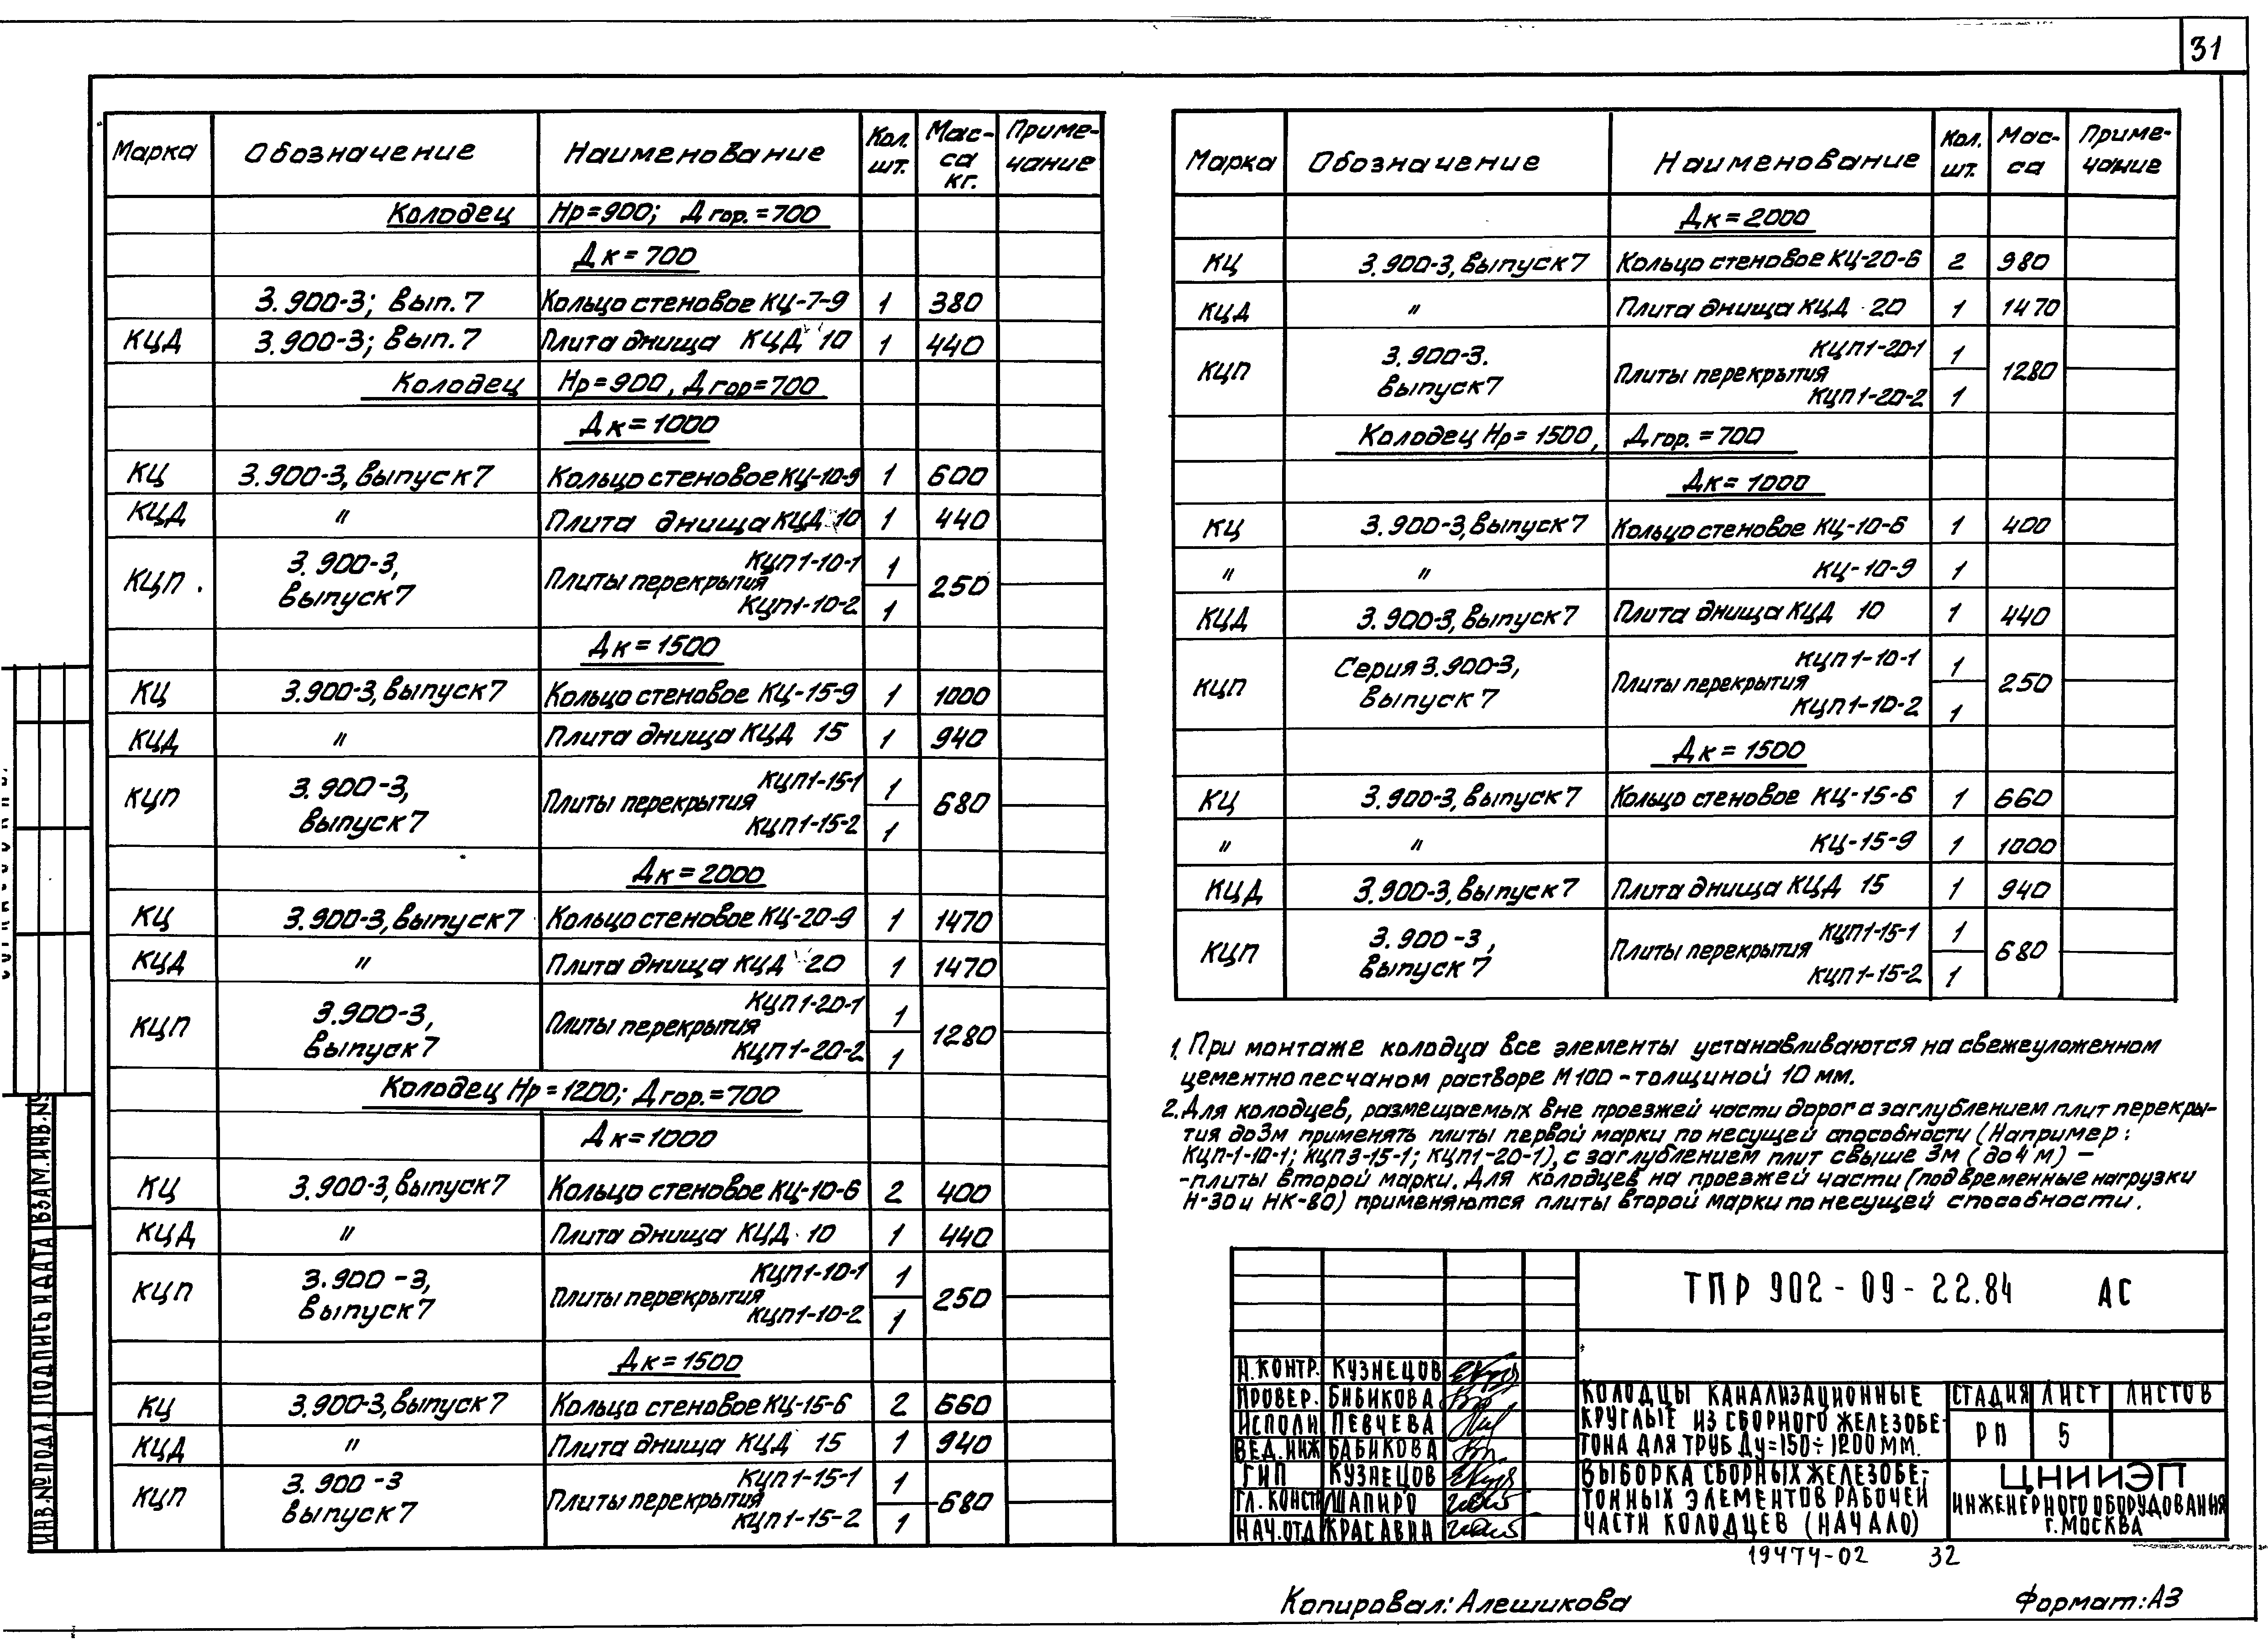 31
Марка Обозначение Наименование Кол. шт. Мас-са кг. Приме-чание
Колодец Нр=900; Дгор.=700
Дк=700
3.900-3; Вып.7 Кольцо стеновое КЦ-7-9 1 380
КЦД 3.900-3; Вып.7 Плита днища КЦД 10 1 440
Колодец Нр=900, Дгор=700
Дк=1000
КЦ 3.900-3, выпуск7 Кольцо стеновое КЦ-10-9 1 600
КЦД " Плита днища КЦД 10 1 440
КЦП1-10-1 1
КЦП. 3.900-3, выпуск7 Плиты перекрытия 250
КЦП1-10-2 1
Дк=1500
КЦ 3.900-3, выпуск7 Кольцо стеновое КЦ-15-9 1 1000
КЦД " Плита днища КЦД 15 1 940
КЦП1-15-1 1
КЦП 3.900-3, выпуск7 Плиты перекрытия 680
КЦП1-15-2 1
Дк=2000
КЦ 3.900-3, выпуск7 Кольцо стеновое КЦ-20-9 1 1470
КЦД " Плита днища КЦД 20 1 1470
КЦП1-20-1 1
КЦП 3.900-3, выпуск7 Плиты перекрытия 1280
КЦП1-20-2 1
Колодец Нр=1200; Дгор.=700
Дк=1000
КЦ 3.900-3, выпуск7 Кольцо стеновое КЦ-10-6 2 400
КЦД " Плита днища КЦД 10 1 440
КЦП1-10-1 1
КЦП 3.900-3, выпуск7 Плиты перекрытия 250
КЦП1-10-2 1
Дк=1500
КЦ 3.900-3, выпуск7 Кольцо стеновое КЦ-15-6 2 660
КЦД " Плита днища КЦД 15 1 940
КЦП1-15-1 1
КЦП 3.900-3 выпуск7 Плиты перекрытия 680
КЦП1-15-2 1
Марка Обозначение Наименование Кол. шт. Мас-са Приме-чание
Дк=2000
КЦ 3.900-3, выпуск7 Кольцо стеновое КЦ-20-6 2 980
КЦД " Плита днища КЦД 20 1 1470
КЦП1-20-1 1
КЦП 3.900-3. выпуск7 Плиты перекрытия 1280
КЦП1-20-2 1
Колодец Нр=1500, Дгор.=700
Дк=1000
КЦ 3.900-3, выпуск7 Кольцо стеновое КЦ-10-6 1 400
" " КЦ-10-9 1
КЦД 3.900-3, выпуск7 Плита днища КЦД 10 1 440
КЦП1-10-1 1
КЦП Серия 3.900-3, выпуск7 Плиты перекрытия 250
КЦП1-10-2 1
Дк=1500
КЦ 3.900-3, выпуск7 Кольцо стеновое КЦ-15-6 1 660
" " КЦ-15-9 1 1000
КЦД 3.900-3, выпуск7 Плита днища КЦД 15 1 940
КЦП1-15-1 1
КЦП 3.900-3, выпуск7 Плиты перекрытия 680
КЦП1-15-2 1
1. При монтаже колодца все элементы устанавливаются на свежеуложенном
цементнопесчаном растворе М100 - толщиной 10 мм.
2. Для колодцев, размещаемых вне проезжей части дорог с заглублением плит перекры-
тия до 3м применять плиты первой марки по несущей способности (Например:
КЦП-1-10-1; КЦП3-15-1; КЦП1-20-1), с заглублением плит свыше 3м (до 4м) -
-плиты второй марки. Для колодцев на проезжей части (под временные нагрузки
Н-30 и НК-80) применяются плиты второй марки по несущей способности.
ТПР 902-09-22.84 АС
Н.КОНТР. КУЗНЕЦОВ
ПРОВЕР. БИБИКОВА
ИСПОЛН ПЕВЧЕВА
ВЕД.ИНЖ БАБИКОВА
ГИП КУЗНЕЦОВ
ГЛ.КОНСТ ШАПИРО
НАЧ.ОТД КРАСАВИН
КОЛОДЦЫ КАНАЛИЗАЦИОННЫЕ
КРУГЛЫЕ ИЗ СБОРНОГО ЖЕЛЕЗОБЕ-
ТОНА ДЛЯ ТРУБ Ду=150÷1200ММ.
СТАДИЯ ЛИСТ ЛИСТОВ
РП 5
ВЫБОРКА СБОРНЫХ ЖЕЛЕЗОБЕ-
ТОННЫХ ЭЛЕМЕНТОВ РАБОЧЕЙ
ЧАСТИ КОЛОДЦЕВ (НАЧАЛО)
ЦНИИЭП
ИНЖЕНЕРНОГО ОБОРУДОВАНИЯ
Г.МОСКВА
19474-02 32
Копировал: Алешикова Формат: А3
ИНВ.№ПОДЛ. ПОДПИСЬ И ДАТА ВЗАМ.ИНВ.№